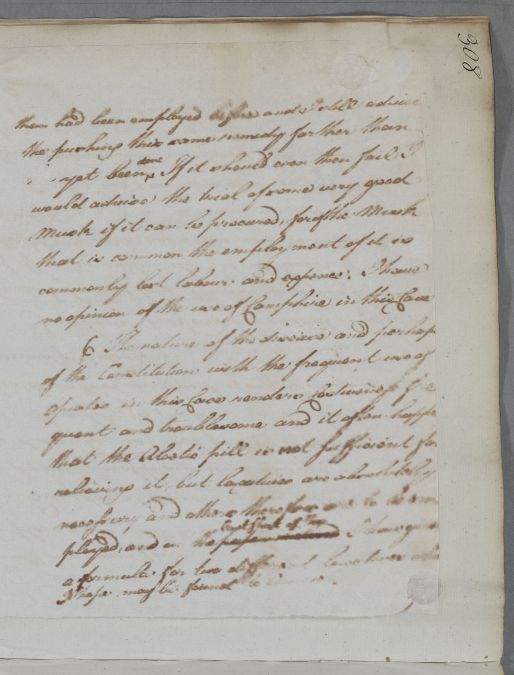 308
them had been employed before and still advise
the pushing this same remedy farther than
yet been done. If it should even then fail I
would advise the trial of some very good
Musk if it can be procured, for of the Musk
that is common the employment of it is
commonly lost labour and expense. I have
no opinion of the use of Camphire in this Case
6 The nature of the disease and perhaps
of the Constitution with the frequent use of
opiates in this Case renders costiveness fre
quent and troublesome and it often happe
that the Aloetic pill is not sufficient for
relieving it, but laxatives are absolutely
necessary and these therefore are to be em
ployed, and in the I have given
a formula for two different laxatives
I hope may be found